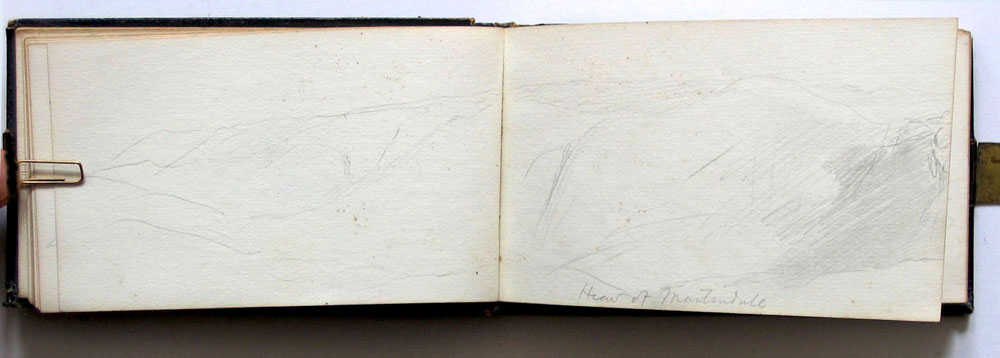 Head of Martindale